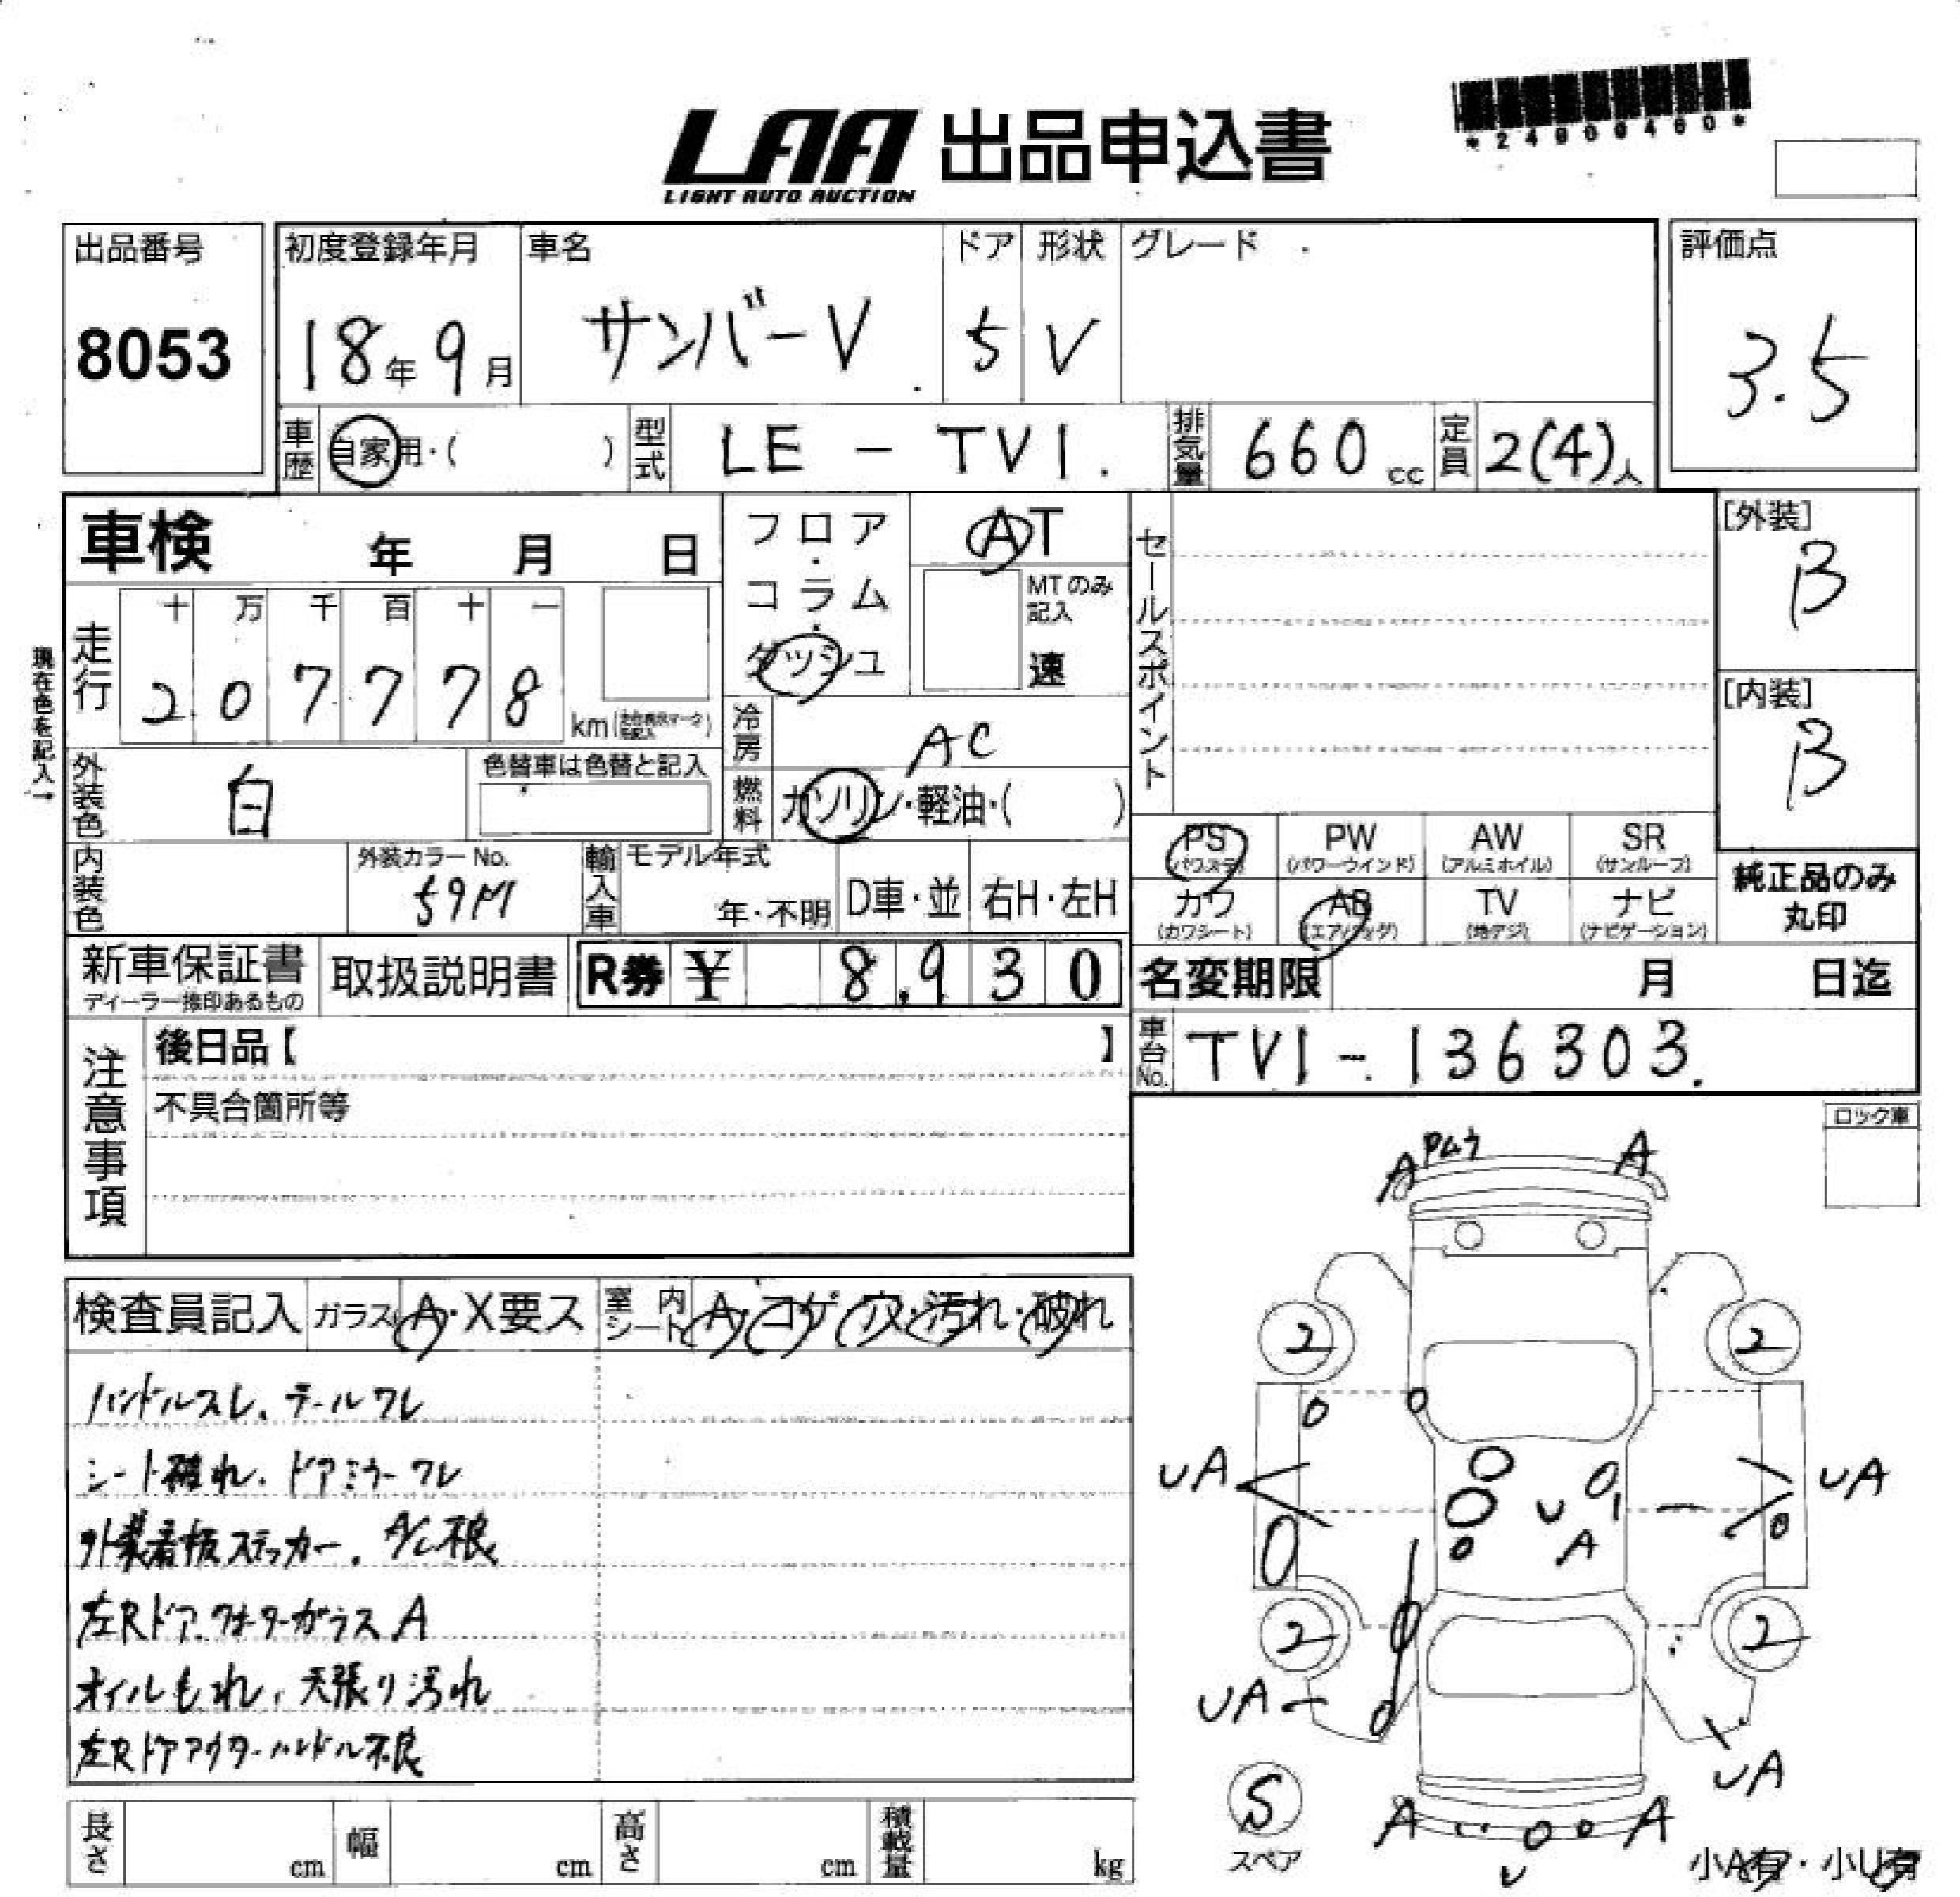 *24800480*
LAA 出品申込書
LIGHT AUTO AUCTION
出品番号
8053
初度登録年月
18年 9月
車名
サンバーV
ドア
5
形状
V
グレード
評価点
3.5
車歴
自家用・( )
型式
LE - TV1.
排気量
660 cc
定員
2(4)人
車検 年 月 日
フロア・コラム・ダッシュ
AT
MTのみ記入
速
セールスポイント
[外装]
B
[内装]
B
現在色を記入→
走行
十 万 千 百 十 一
2 0 7 7 7 8 km
冷房
AC
燃料
ガソリン・軽油・( )
外装色
白
色替車は色替と記入
内装色
外装カラーNo.
59M
輸入車
モデル年式
年・不明
D車・並
右H・左H
PS (パワステ)
PW (パワーウインド)
AW (アルミホイル)
SR (サンルーフ)
カワ (カワシート)
AB (エアバッグ)
TV (地デジ)
ナビ (ナビゲーション)
純正品のみ丸印
新車保証書
ディーラー捺印あるもの
取扱説明書
R券 ¥ 8,930
名変期限 月 日迄
車台No.
TV1-136303.
注意事項
後日品【 】
不具合箇所等
ロック車
検査員記入
ガラス A・X要ス
室内シート A・コゲ・穴・汚れ・破れ
ハンドルスレ、テールワレ
シート破れ、ドアミラーワレ
外装看板ステッカー、A/C不良
左Rドア、クォーターガラスA
オイルもれ、天張り汚れ
左Rドアアウターハンドル不良
A A
2 2
UA UA
U A
2 2
UA UA
S
スペア
A A
U
小A有・小U有
長さ cm
幅 cm
高さ cm
積載量 kg